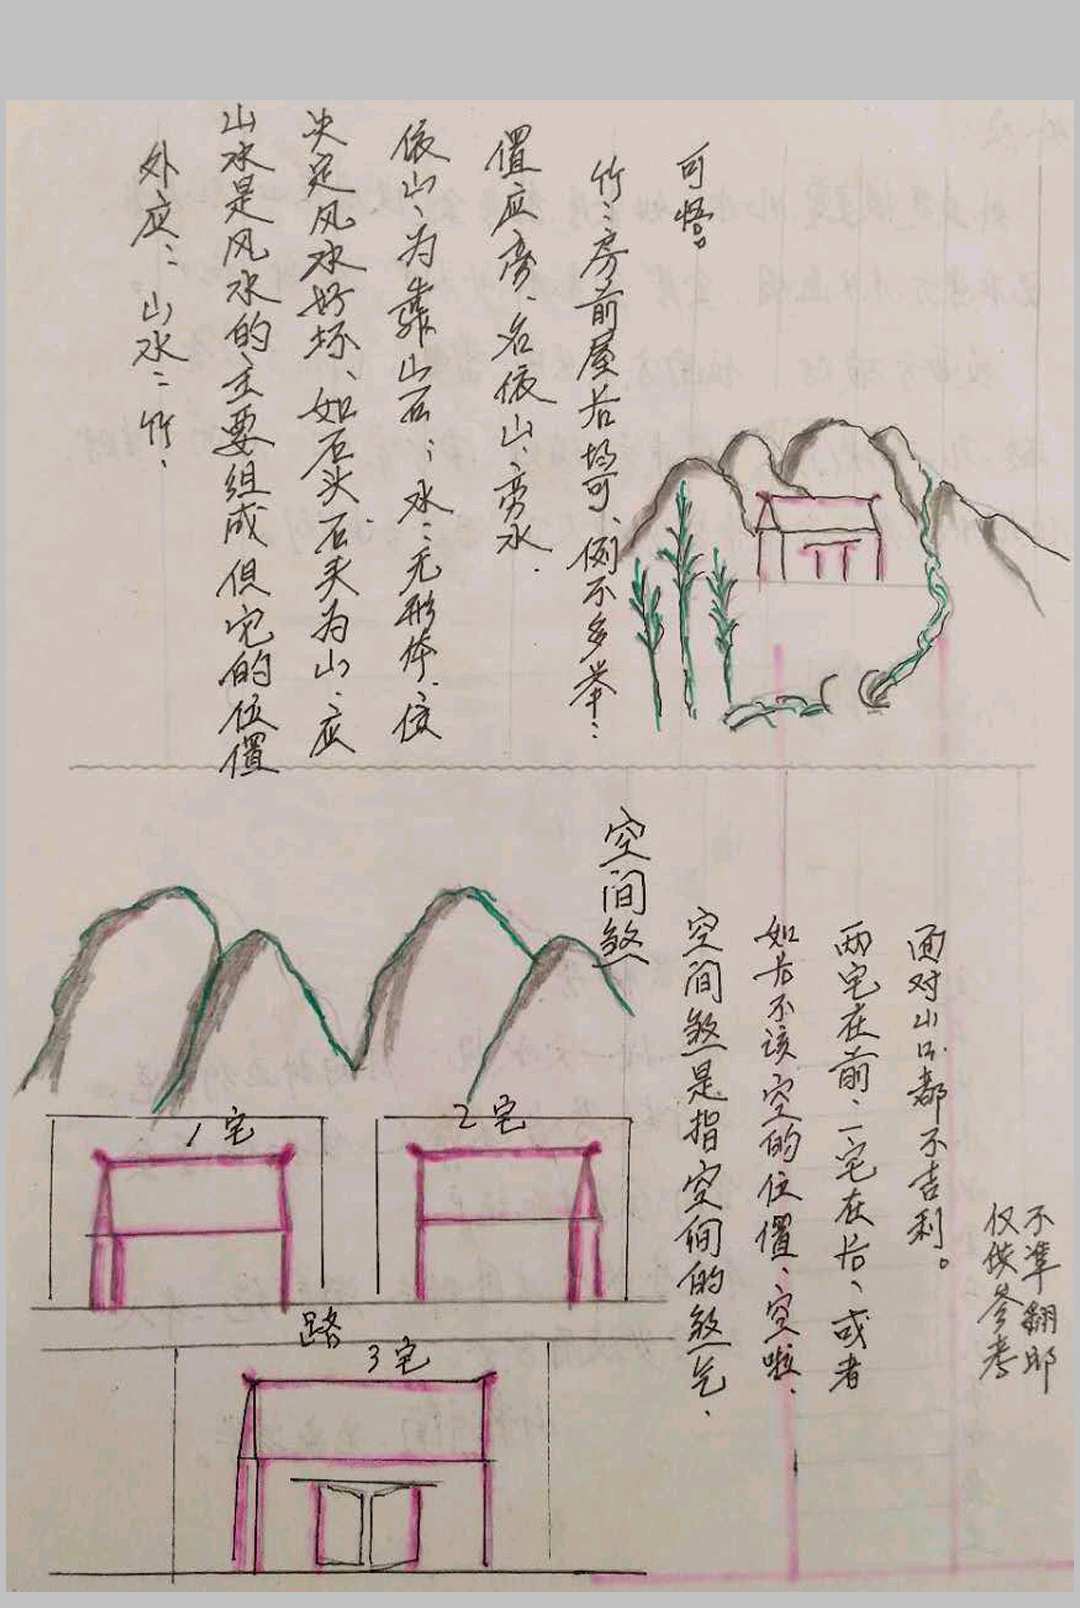 外应:山水:竹、
山水是风水的主要组成但它的位置
决定风水好坏、如石头石头为山、应
依山、为靠山石;水:无形体、位
置应旁、名依山、旁水.
竹:房前屋后均可、例不多举:
可悟。
空间煞
空间煞是指空间的煞气.
如后不该空的位置、空啦.
两宅在前、一宅在后、或者
面对山口都不吉利。
仅供参考
不準翻印
1宅
2宅
路
3宅